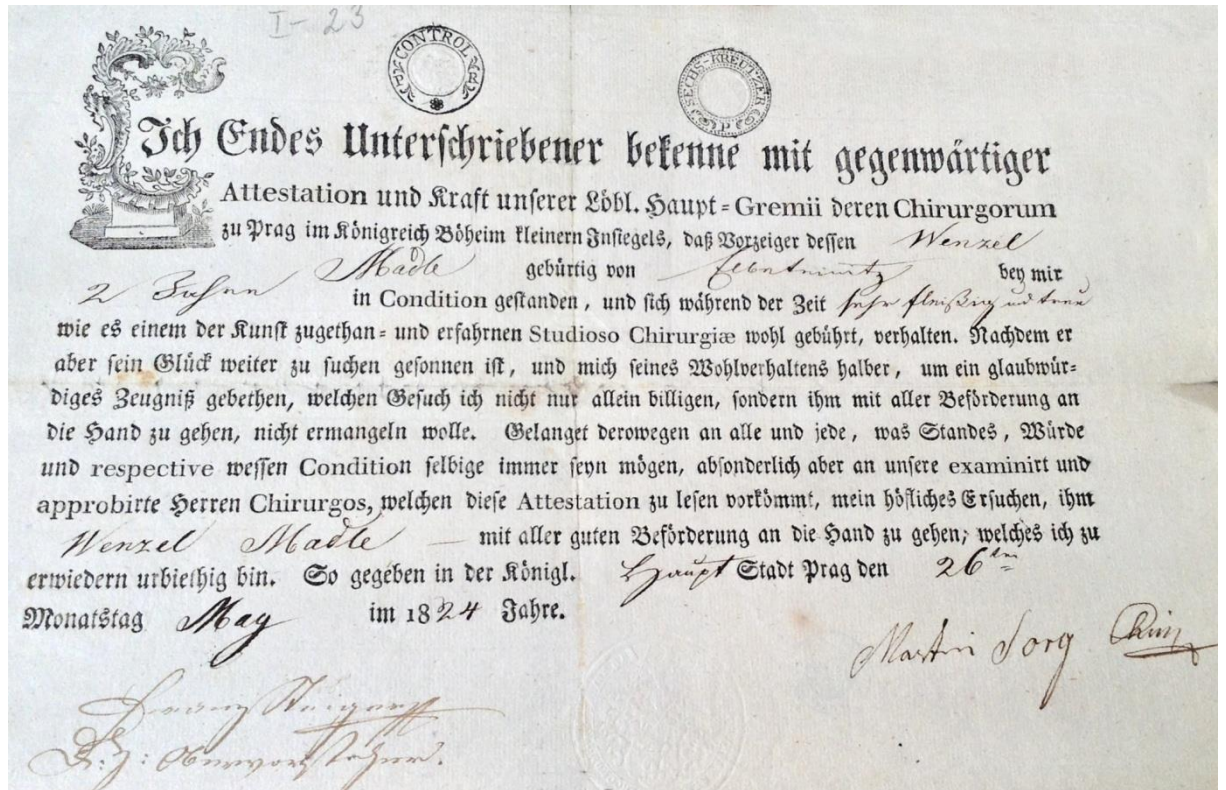 I-23
CONTROL
SECHS-KREUTZER
Ich Endes Unterschriebener bekenne mit gegenwärtiger
Attestation und Kraft unserer Löbl. Haupt-Gremii deren Chirurgorum
zu Prag im Königreich Böheim kleinern Insiegels, daß Vorzeiger dessen Wenzel
Madle gebürtig von Elbeteinitz bey mir
2 Jahre in Condition gestanden, und sich während der Zeit sehr fleißig und treu
wie es einem der Kunst zugethan- und erfahrnen Studioso Chirurgiæ wohl gebührt, verhalten. Nachdem er
aber sein Glück weiter zu suchen gesonnen ist, und mich seines Wohlverhaltens halber, um ein glaubwür-
diges Zeugniß gebethen, welchen Gesuch ich nicht nur allein billigen, sondern ihm mit aller Beförderung an
die Hand zu gehen, nicht ermangeln wolle. Gelanget derowegen an alle und jede, was Standes, Würde
und respective wessen Condition selbige immer seyn mögen, absonderlich aber an unsere examinirt und
approbirte Herren Chirurgos, welchen diese Attestation zu lesen vorkömmt, mein höfliches Ersuchen, ihm
Wenzel Madle mit aller guten Beförderung an die Hand zu gehen, welches ich zu
erwiedern urbiethig bin. So gegeben in der Königl. Haupt Stadt Prag den 26ten
Monatstag May im 1824 Jahre.
Martin Sorg Chir
Franz
D. Z: Obervorsteher.